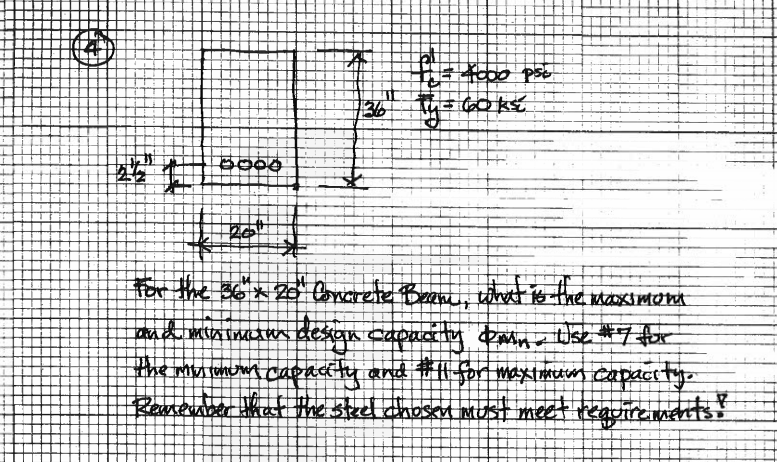 4
f'c = 4000 psi
36" Fy = 60 ksi
2½"
20"
For the 36" x 20" Concrete Beam, what is the maximum
and minimum design capacity ΦMn. Use #7 for
the minimum capacity and #11 for maximum capacity.
Remember that the steel chosen must meet requirements!